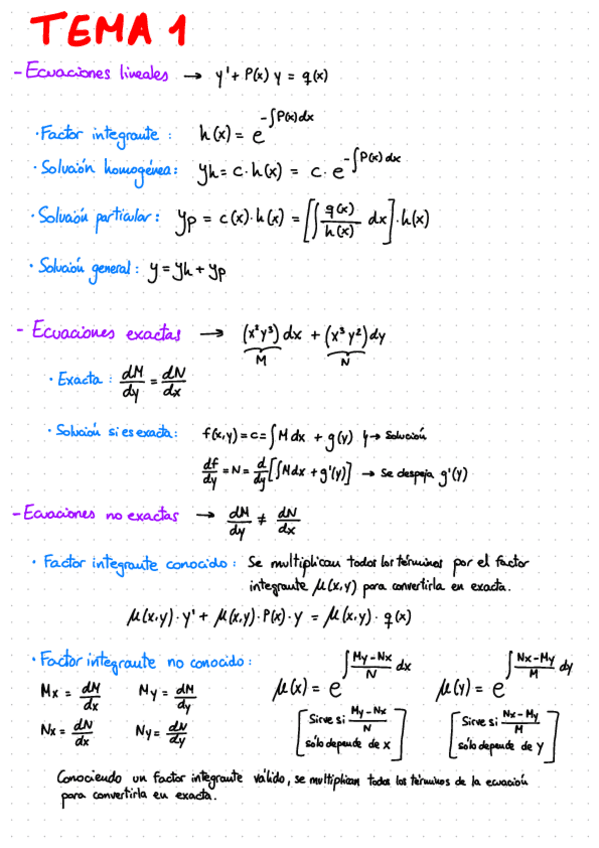 TEMA 1
- Ecuaciones lineales → y' + P(x) y = q(x)
· Factor integrante : h(x) = e^{-∫P(x)dx}
· Solución homogénea: yh = c·h(x) = c·e^{-∫P(x)dx}
· Solución particular: yp = c(x)·h(x) = [∫ q(x)/h(x) dx]·h(x)
· Solución general: y = yh + yp
- Ecuaciones exactas → (x²y³)dx + (x³y²)dy
M N
· Exacta : dM/dy = dN/dx
· Solución si es exacta: f(x,y) = c = ∫M dx + g(y) → Solución
df/dy = N = d/dy [∫Mdx + g'(y)] → Se despeja g'(y)
- Ecuaciones no exactas → dM/dy ≠ dN/dx
· Factor integrante conocido : Se multiplican todos los términos por el factor
integrante μ(x,y) para convertirla en exacta.
μ(x,y)·y' + μ(x,y)·P(x)·y = μ(x,y)·q(x)
· Factor integrante no conocido :
Mx = dM/dx My = dM/dy
Nx = dN/dx Ny = dN/dy
μ(x) = e^{∫ (My-Nx)/N dx}
[Sirve si (My-Nx)/N
sólo depende de x]
μ(y) = e^{∫ (Nx-My)/M dy}
[Sirve si (Nx-My)/M
sólo depende de y]
Conociendo un factor integrante válido, se multiplican todos los términos de la ecuación
para convertirla en exacta.